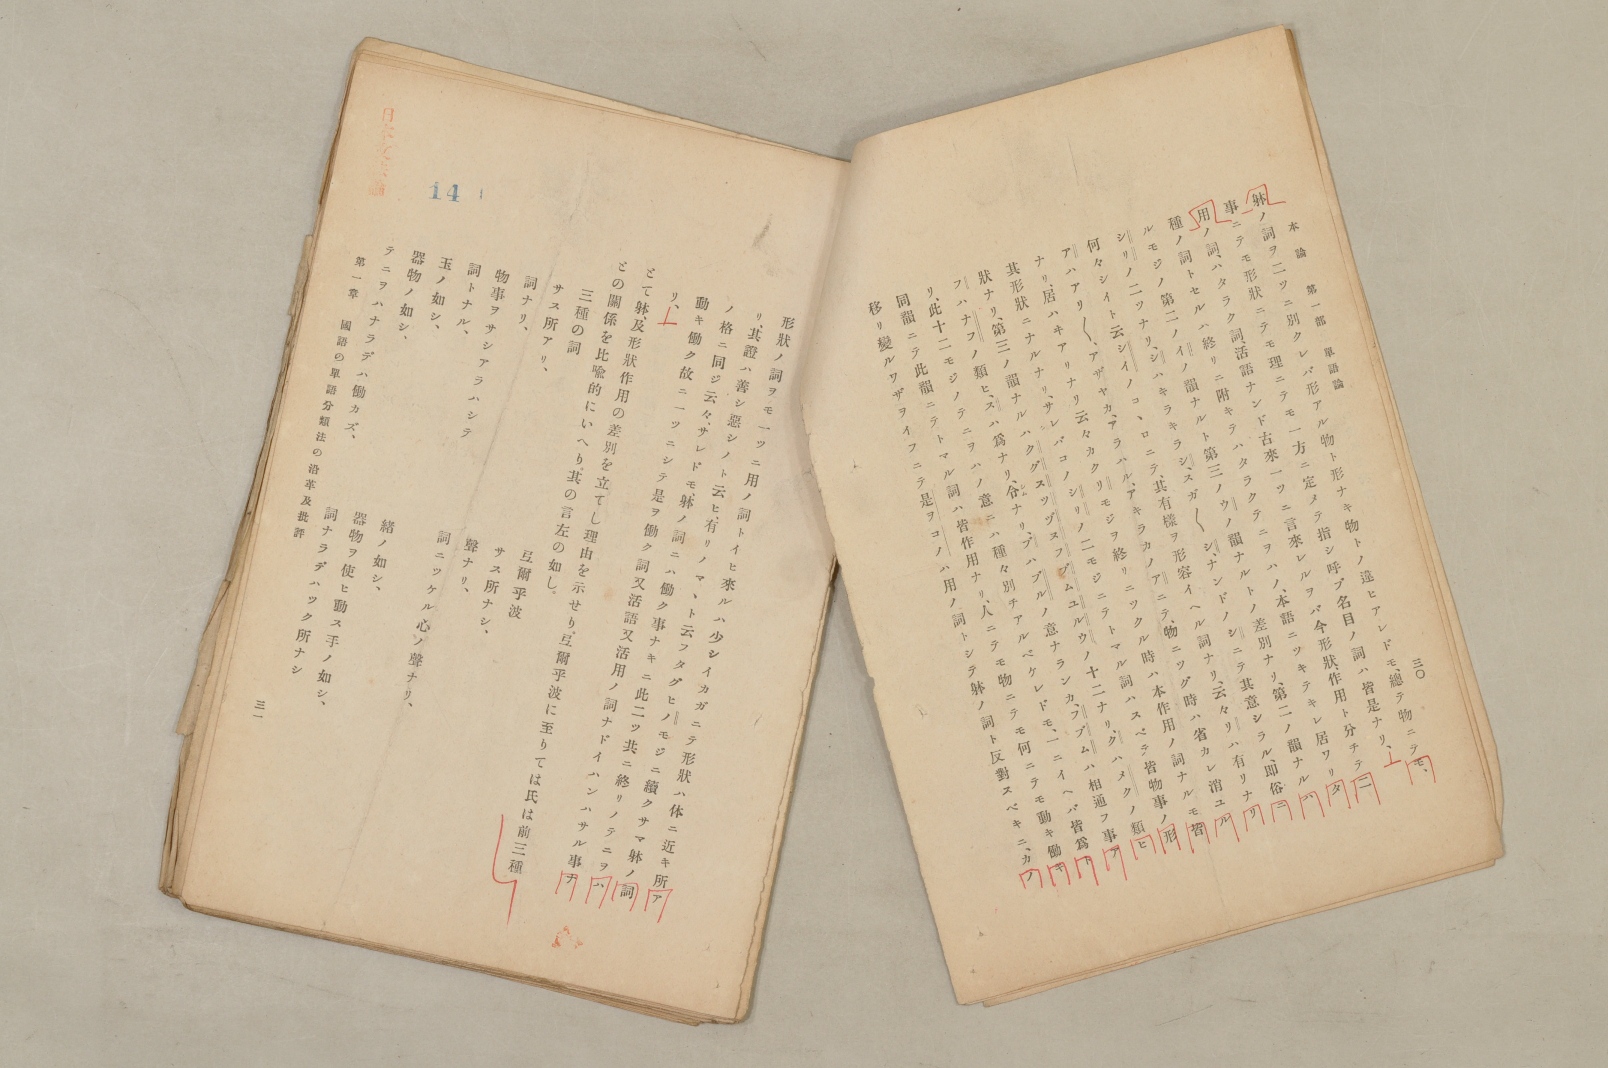 本論　第一部　單語論
三〇
躰ノ詞ヲ二ツニ別クレバ形アル物ト形ナキ物トノ違ヒアレドモ、總テ物ニテモ、
事ニテモ形狀ニテモ理ニテモ一方ニ定メテ指シ呼ブ名目ノ詞ハ皆是ナリ、
用ノ詞、ハタラク詞、活語ナンド古來一ツニ言來レルヲバ今形狀、作用ト分チテ二
種ノ詞トセルハ終リニ附キテハタラクテニヲハノ、本語ニツキテキレ居ワリタ
ルモジノ第二ノイノ韻ナルト第三ノウノ韻ナルトノ差別ナリ、第二ノ韻ナルハ
シリノ二ツナリ、シハキラキラシ、スガ〱シ、ナンドノシニテ其意シラル、即俗ニ
何々シイト云シイノコヽロニテ、其有樣ヲ形容イヘル詞ナリ、云々リハ有リナリ
アハアリ〱、アザヤカ、アラハル、アキラカノアニテ、物ニツグ時ハ省カレ消ユル
ナリ、居ハキアリナリ云々カクリモジヲ終リニツクル時ハ本作用ノ詞ナルモ皆
其形狀ニナルナリ、サレバコノシリノ二モジニテトマル詞ハスベテ皆物事ノ形
狀ナリ、第三ノ韻ナルハクグスツヅヌフブムユルウノ十二ナリ、クハメクノ類ヒ
フハナフノ類ヒ、スハ爲ナリ、ブハブルノ意ナランカ、フブムハ相通フ事ア
リ、此十二モジノテニヲハノ意ニハ種々別チアルベケレドモ、一ニイヘバ皆爲ト
同韻ニテ此韻ニテトマル詞ハ皆作用ナリ、人ニテモ物ニテモ何ニテモ動キ働キ
移リ變ルワザヲイフニテ是ヲコノハ用ノ詞トシテ躰ノ詞ト反對スベキニ、カノ
形狀ノ詞ヲモ一ツニ用ノ詞トイヒ來ルハ少シイカガニテ形狀ハ体ニ近キ所ア
リ、其證ハ善シ惡シノト云ヒ、有リノマヽト云フタグヒノモジニ續クサマ躰ノ詞
ノ格ニ同ジ云々、サレドモ、躰ノ詞ニハ働ク事ナキニ此二ツ共ニ終リノテニヲハ
動キ働ク故ニ一ツニシテ是ヲ働ク詞又活語又活用ノ詞ナドイハンハサル事ナ
リ、
とて躰、及形狀作用の差別を立てし理由を示せり、弖爾乎波に至りては氏は前三種
との關係を比喩的にいへり。其の言左の如し。
三種の詞　弖爾乎波
サス所アリ、　サス所ナシ、
詞ナリ、　聲ナリ、
物事ヲサシアラハシテ　詞ニツケル心ノ聲ナリ、
詞トナル、
玉ノ如シ、　緒ノ如シ、
器物ノ如シ、　器物ヲ使ヒ動ス手ノ如シ、
テニヲハナラデハ働カズ、　詞ナラデハツク所ナシ
第一章　國語の單語分類法の沿革及批評
三一
14